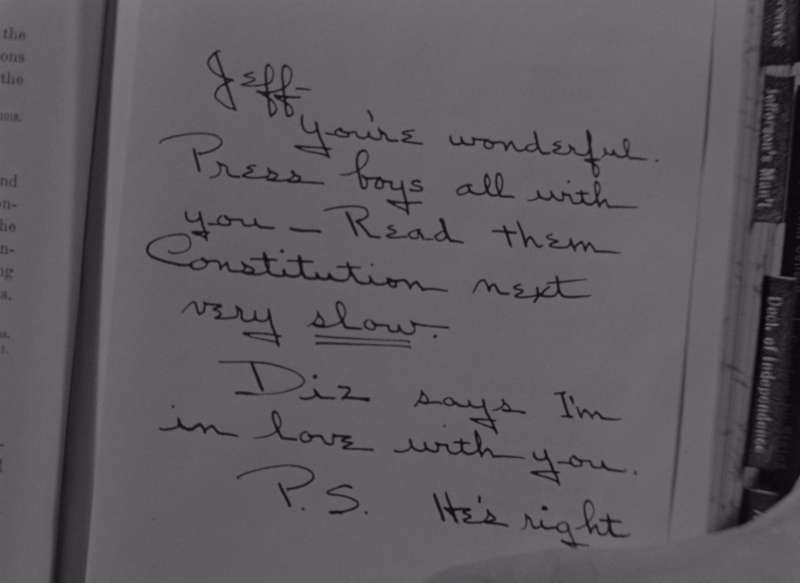 the
ons
the
nd
on-
he
n-
ng
a.
Jeff-
you're wonderful.
Press boys all with
you - Read them
Constitution next
very slow.
Diz says I'm
in love with you.
P.S. He's right
Jefferson's Man'l
Decl. of Independence